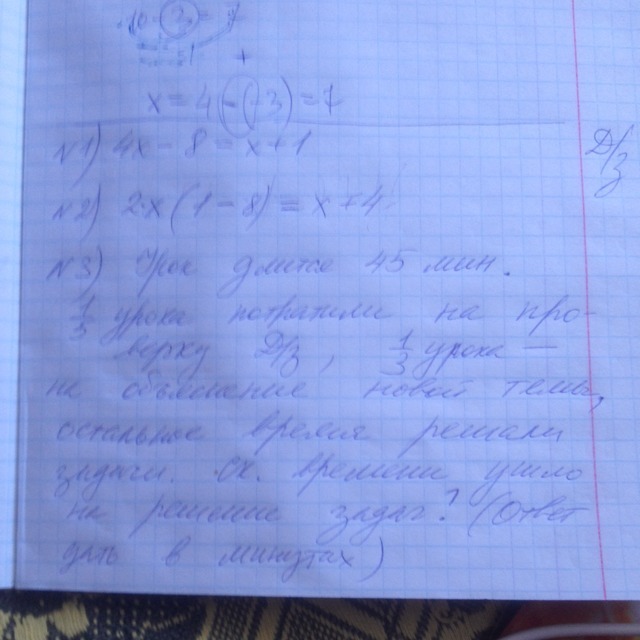 x = 4 - (-3) = 7
N1) 4x - 8 = x + 1
Д/з
N2) 2x(1 - 8) = x + 4
N3) Урок длится 45 мин.
1/5 урока потратили на про-
верку Д/з, 1/3 урока —
на объяснение новой темы,
остальное время решали
задачи. ск. времени ушло
на решение задач? (Ответ
дать в минутах)